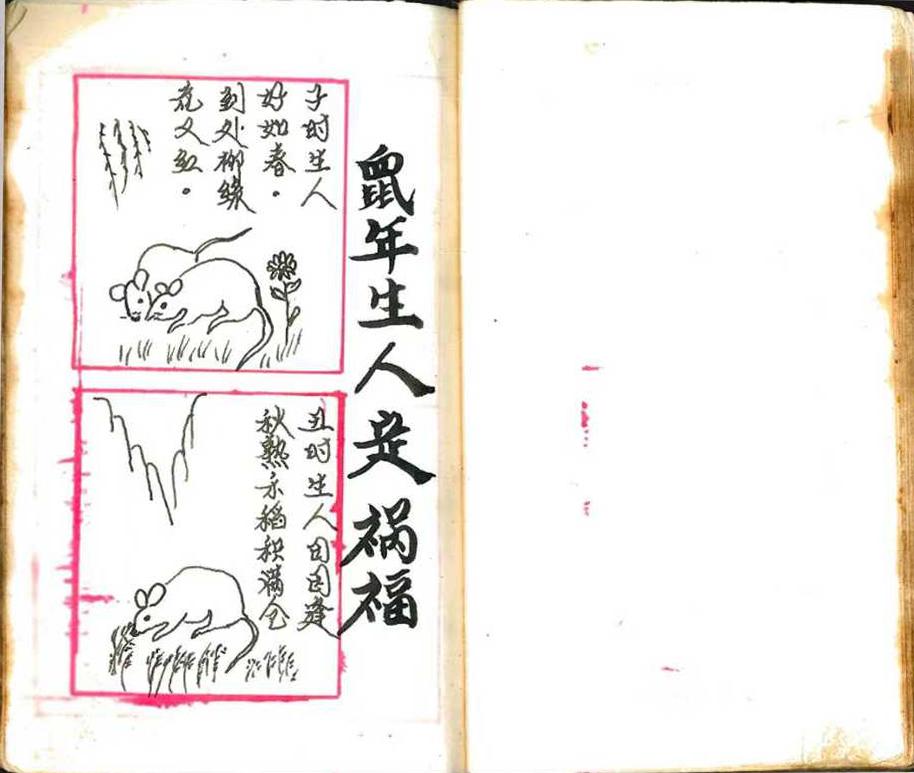 鼠年生人定祸福
子时生人
好如春。
到处柳绿
花又红。
丑时生人逢
秋熟禾稻积满仓